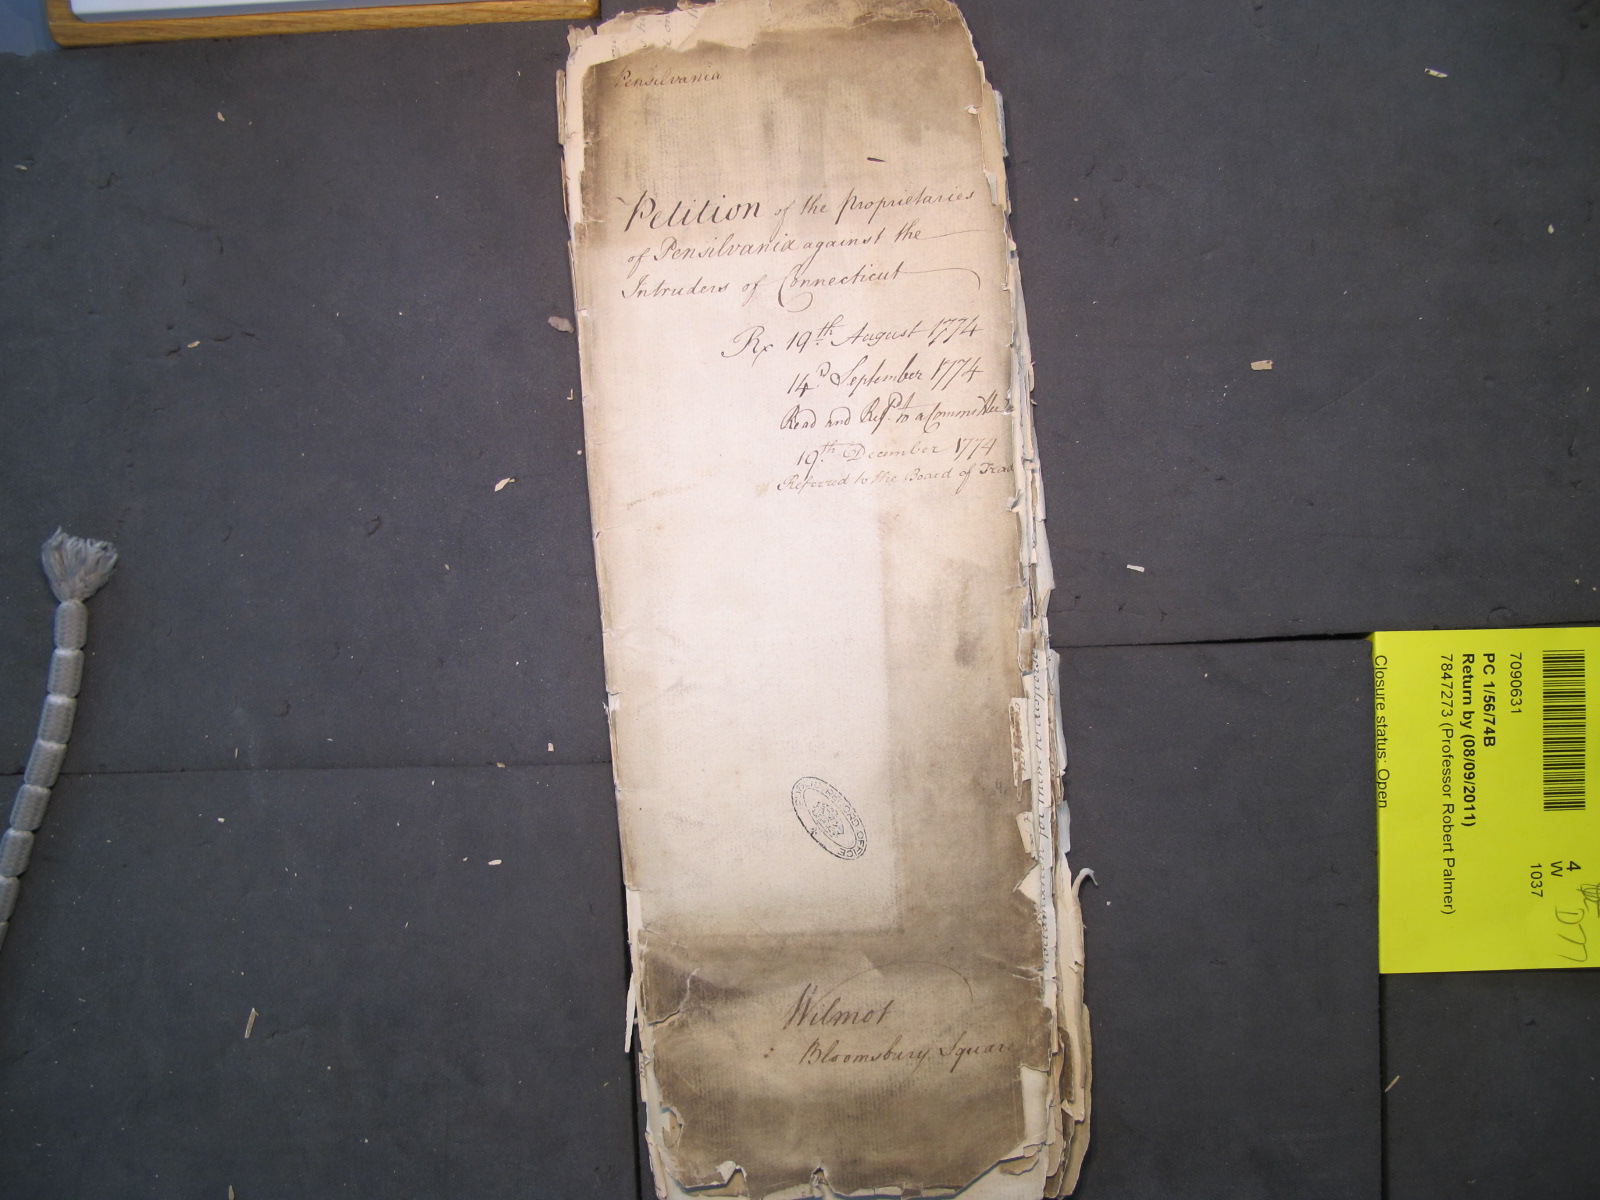 Pensilvania
Petition of the Proprietaries
of Pensilvania against the
Intruders of Connecticut
Rx 19th August 1774
14th September 1774
Read and Refd to a Committee
19th December 1774
Referred to the Board of Trad
PUBLIC RECORD OFFICE
Wilmot
Bloomsbury Square
7090631
PC 1/56/74B
Return by (08/09/2011)
7847273 (Professor Robert Palmer)
Closure status: Open
4
W
1037
D77